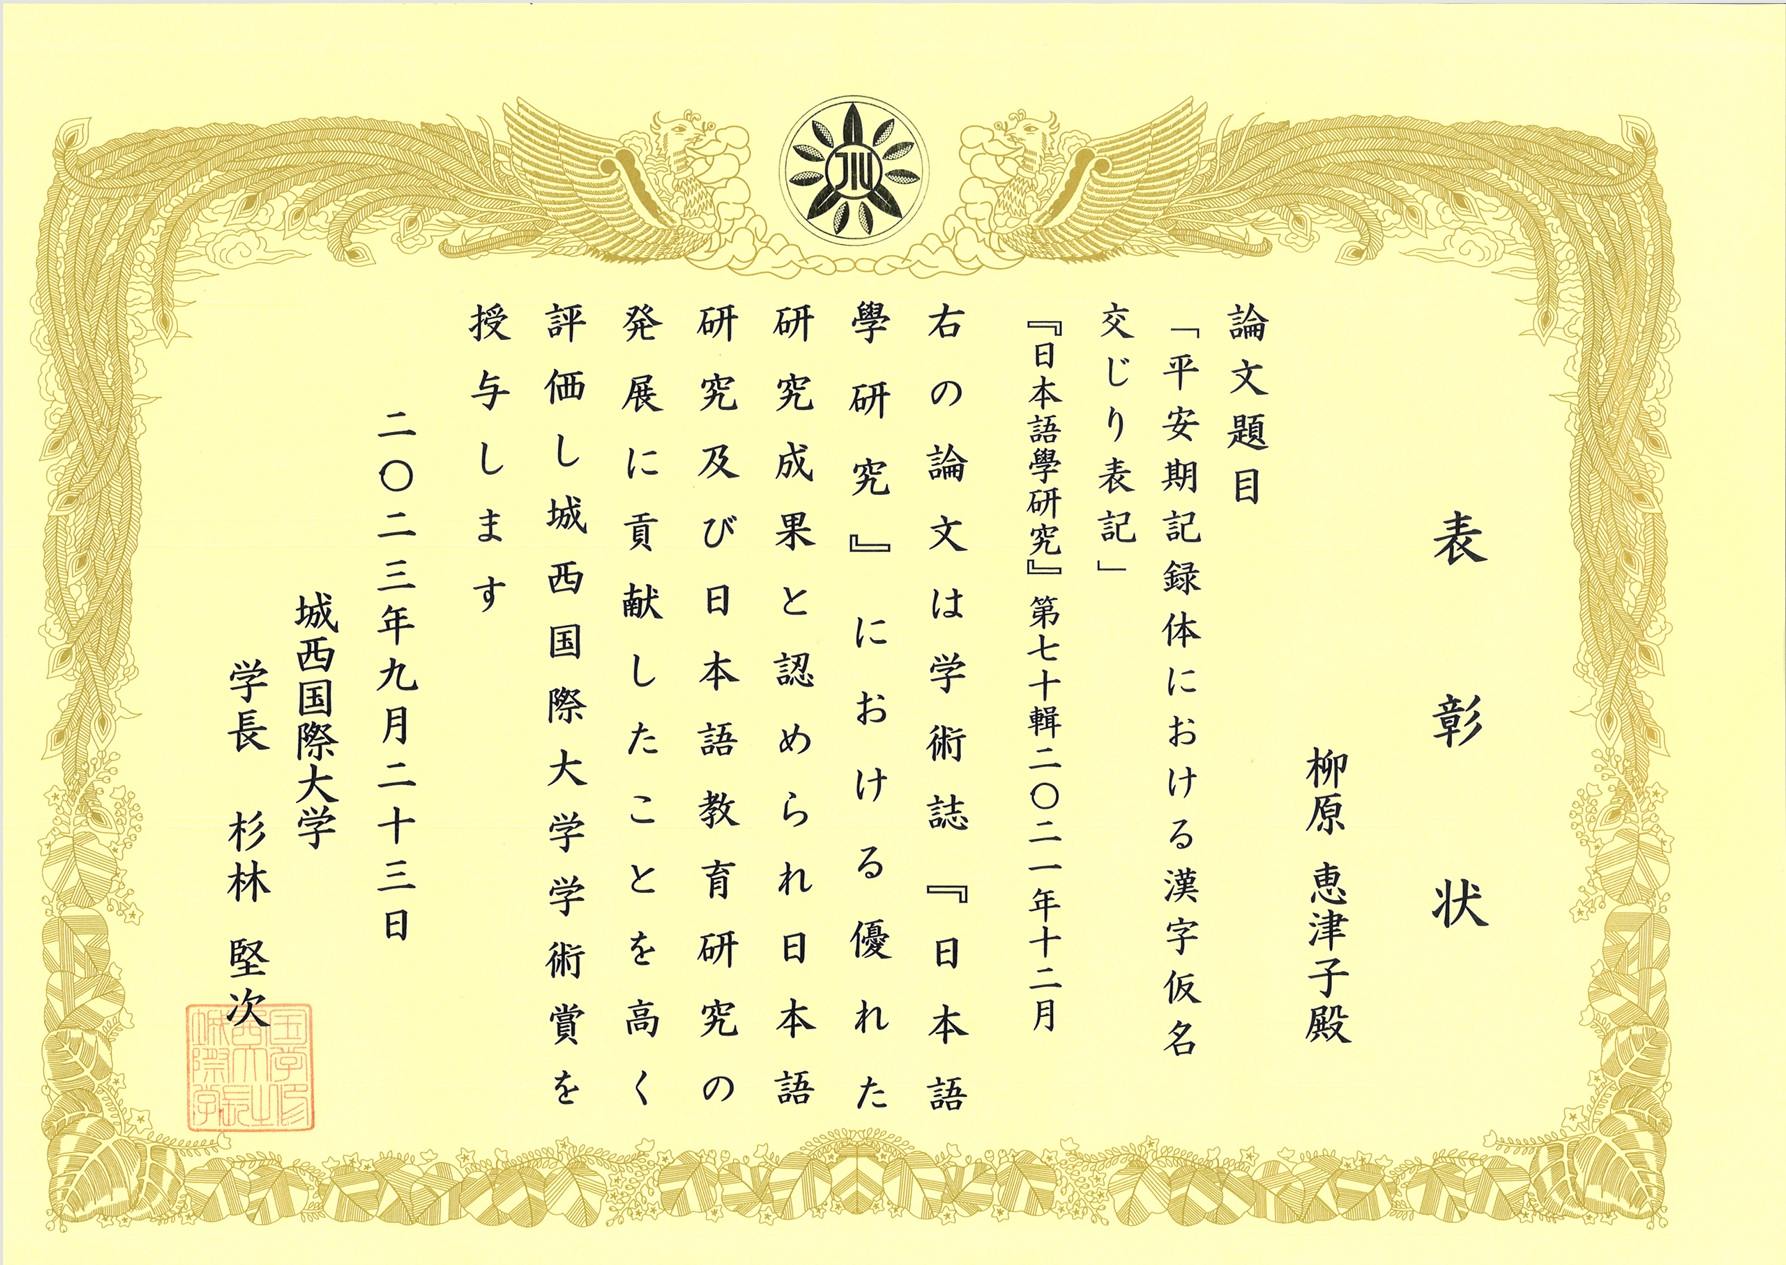 JIU
表彰状
柳原 恵津子殿
論文題目
「平安期記録体における漢字仮名
交じり表記」
『日本語學研究』第七十輯二〇二一年十二月
右の論文は学術誌『日本語
學研究』における優れた
研究成果と認められ日本語
研究及び日本語教育研究の
発展に貢献したことを高く
評価し城西国際大学学術賞を
授与します
二〇二三年九月二十三日
城西国際大学
学長 杉林 堅次
城西国際大学学長之印